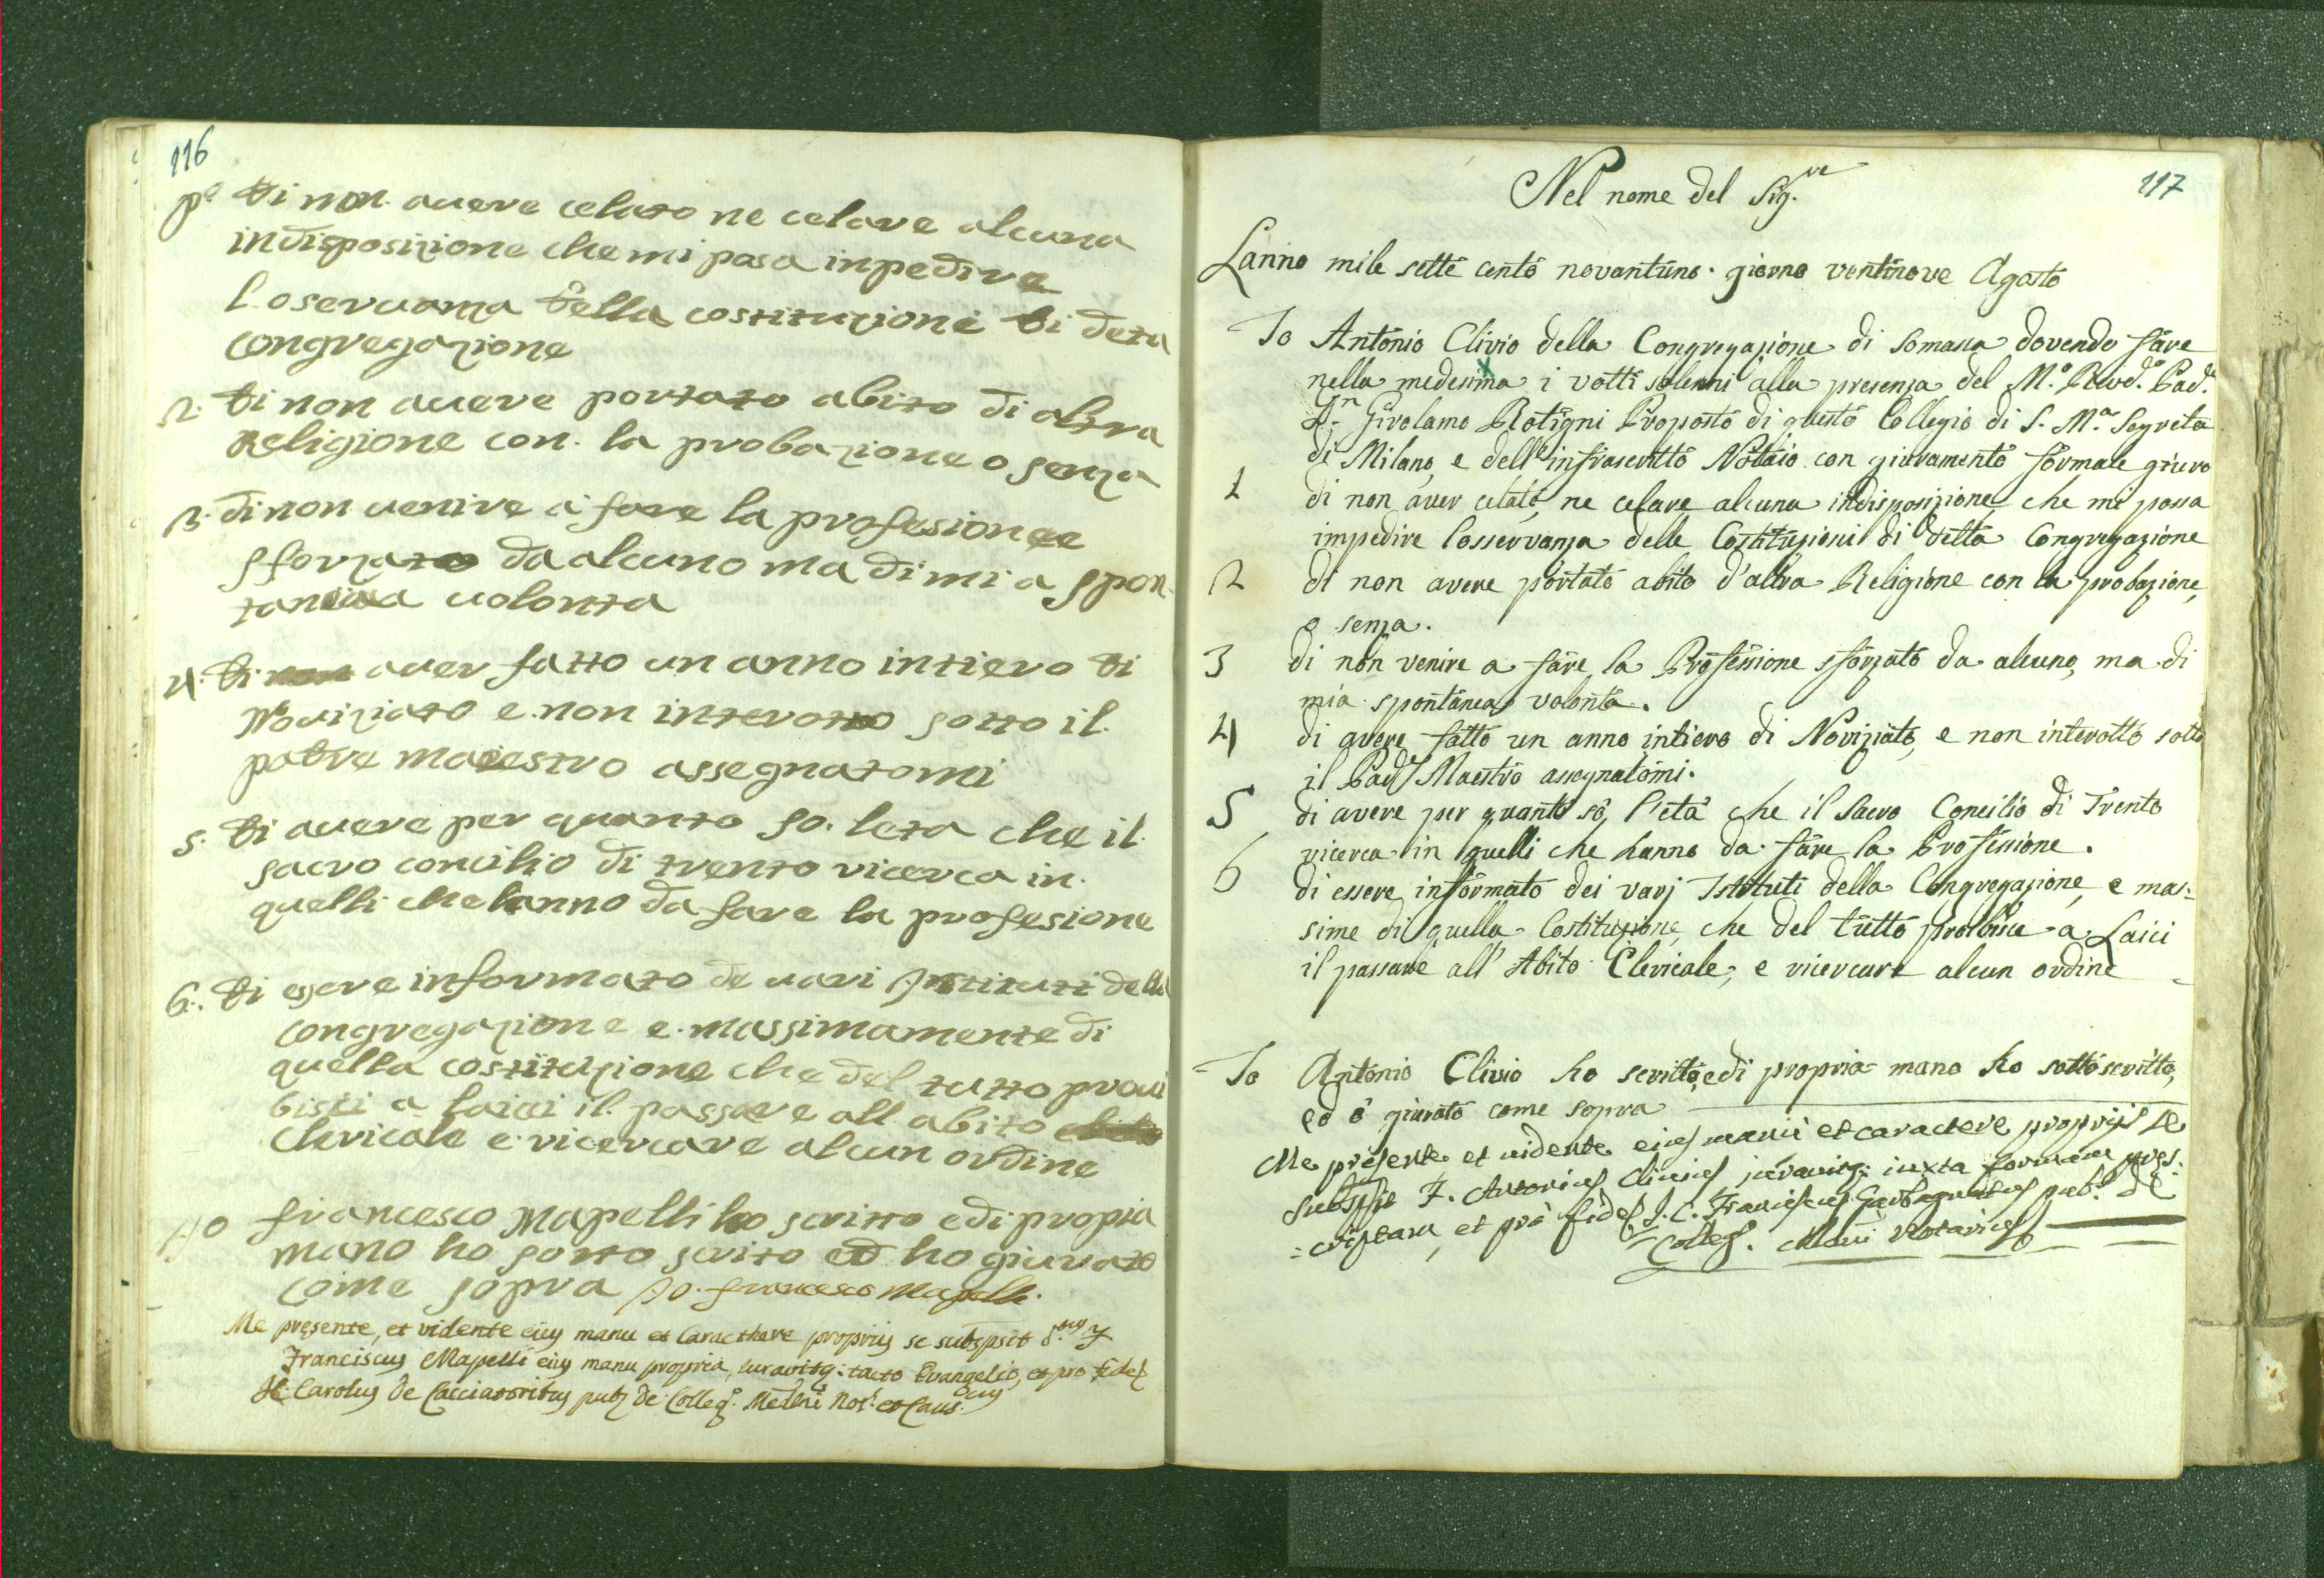 116
p.o di non avere celato ne celare alcuna
indisposizione che mi posa inpedire
l oservanza della costituzione di deta
congregazione
2. di non avere portato abito di altra
Religione con la probazione o senza
3. di non venire à fare la profesione
sforzato da alcuno ma di mi a spon
tanea volonta
4. di aver fatto un anno intiero di
Noviziato e non interotto sotto il
patre maiestro assegnatomi
5. di avere per quanto so. leta che il
sacro concilio di trento ricerca in
quelli che hanno da fare la profesione
6. di essere informato de vari Istituti della
congregazione e massimamente di
quella costituzione che del tutto proui
bisci a laici il passare all abito
clericale e ricercare alcun ordine
Io francesco Mapelli ho scritto e di propia
mano ho sotto scrito ed ho giurato
come sopra Io. francesco Mapelli.
Me presente, et vidente eius manu et Caracthere propriis se subspsit
Franciscus Mapelli eius manu propria, iuravitq: tacto Evangelio, et pro fide
Carolus de Cacciatoribus pub de Colleg.o Medlni Not.s et Caus.cus
117
Nel nome del Sig.re
Lanno mile sette cento novantuno. giorno ventinove Agosto
Io Antonio Clivio della Congregazione di Somasca dovendo fare
nella medesima i votti solenni alla presenza del M.o Revd.o Pad.e
D.n Girolamo Rotigni Proposto di questo Collegio di S. M.a Segreta
di Milano, e dell'infrascritto Notaio con giuramento formale giuro
1 di non aver celato, ne celare alcuna indisposizione, che mi possa
impedire l'osservanza delle Costituzioni di detta Congregazione
2 di non avere portato abito d'altra Religione con la probazione,
o senza.
3 di non venire a fare la Professione sforzato da alcuno, ma di
mia spontanea volontà.
4 di avere fatto un anno intiero di Noviziato, e non interotto sotto
il Pad.e Maestro assegnatomi.
5 di avere per quanto sò, l'età che il Sacro Concilio di Trento
ricerca in quelli che hanno da fare la Professione.
6 di essere informato dei varj Istituti della Congregazione, e mas:
sime di quella Costituzione, che del tutto proibisce a Laici
il passare all'Abito Clericale, e ricercare alcun ordine
Io Antonio Clivio ho scritto, e di propria mano ho sottoscritto,
ed ò giurato come sopra
Me presente et vidente eius manu et caractere proprijs se
subspsit F. Antonius Clivius juravitq: iuxta formam pres:
=criptam, et pro fide J. C. Franciscus Garbagnatus pub.s de
Colleg. Mlani Notarius